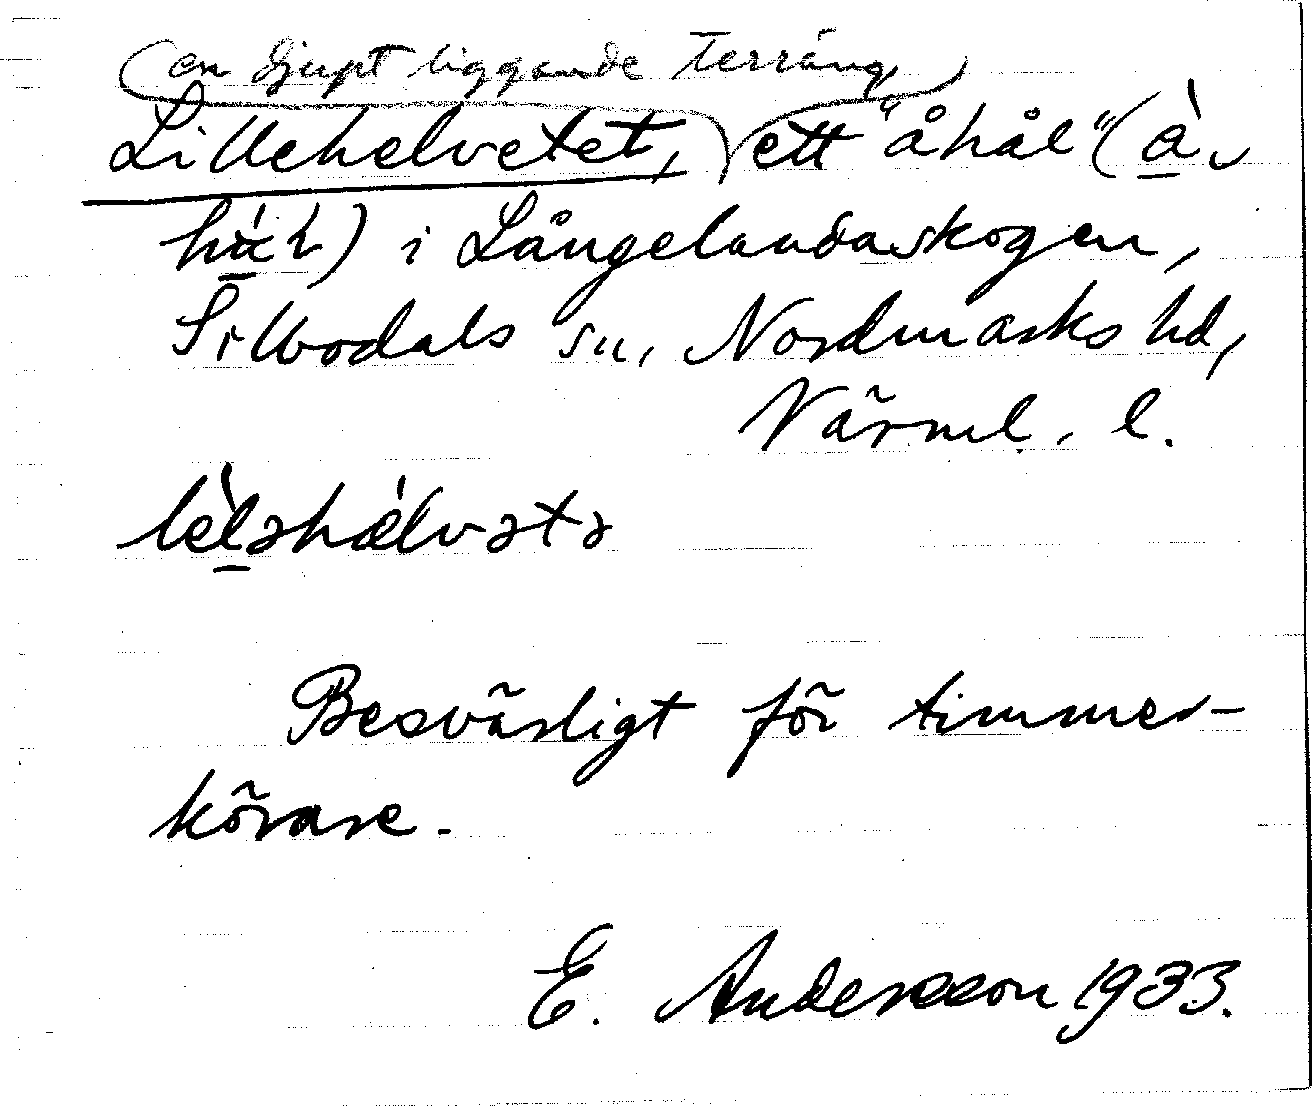 (en djupt liggande terräng)
Lillehelvetet, ett "åhål" (
) i Långelandaskogen,
Sillbodals sn, Nordmarks hd,
Värml. l.
lèləhælvətə
Besvärligt för timmer-
körare.
E. Andersson 1933.